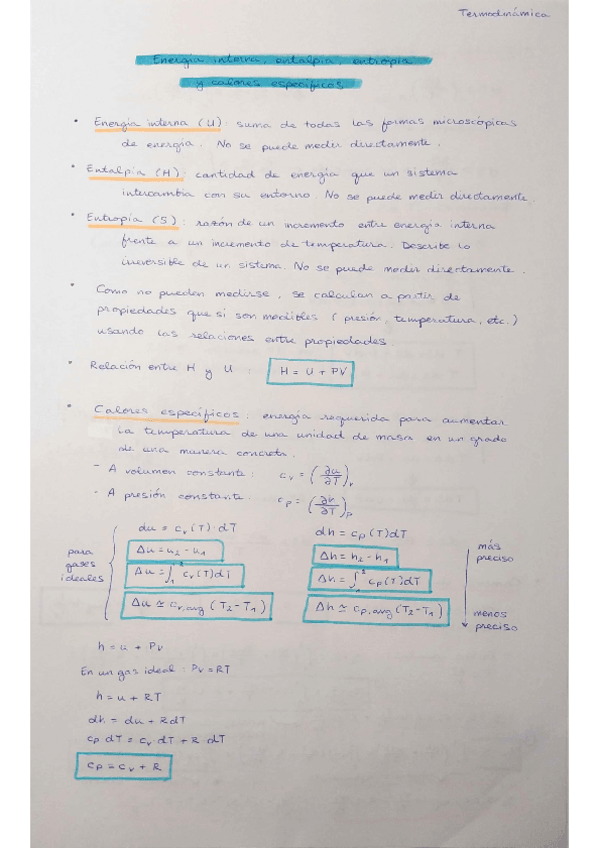 Termodinámica
Energía interna, entalpía, entropía
y calores específicos
• Energía interna (U): suma de todas las formas microscópicas
de energía. No se puede medir directamente.
• Entalpía (H): cantidad de energía que un sistema
intercambia con su entorno. No se puede medir directamente.
• Entropía (S): razón de un incremento entre energía interna
frente a un incremento de temperatura. Describe lo
irreversible de un sistema. No se puede medir directamente.
• Como no pueden medirse, se calculan a partir de
propiedades que si son medibles (presión, temperatura, etc.)
usando las relaciones entre propiedades.
• Relación entre H y U: H = U + PV
• Calores específicos: energía requerida para aumentar
la temperatura de una unidad de masa en un grado
de una manera concreta.
- A volumen constante: cv = (∂u/∂T)v
- A presión constante: cp = (∂h/∂T)p
du = cv(T) dT dh = cp(T)dT
para gases ideales
Δu = u2 - u1 Δh = h2 - h1
Δu = ∫₁² cv(T)dT Δh = ∫₁² cp(T)dT
Δu ≃ cv,avg (T2 - T1) Δh ≃ cp,avg (T2 - T1)
más
preciso
menos
preciso
h = u + Pv
En un gas ideal: Pv = RT
h = u + RT
dh = du + RdT
cp dT = cv dT + R dT
cp = cv + R